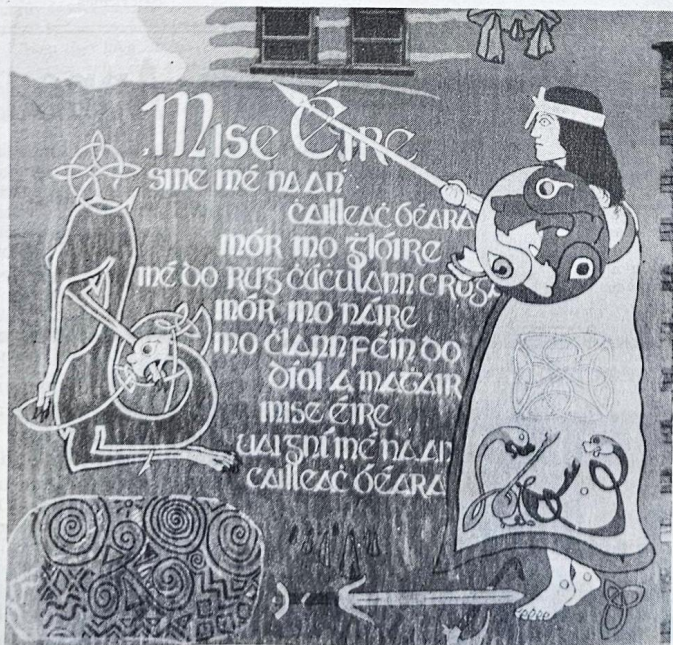 Mise Éire
sine mé na an
ċailleaċ ḃéara
mór mo ġlóire
mé do rug cúċulann cróga
mór mo náire
mo ċlann féin do
díol a maṫair
mise éire
uaigní mé na an
cailleaċ ḃéara